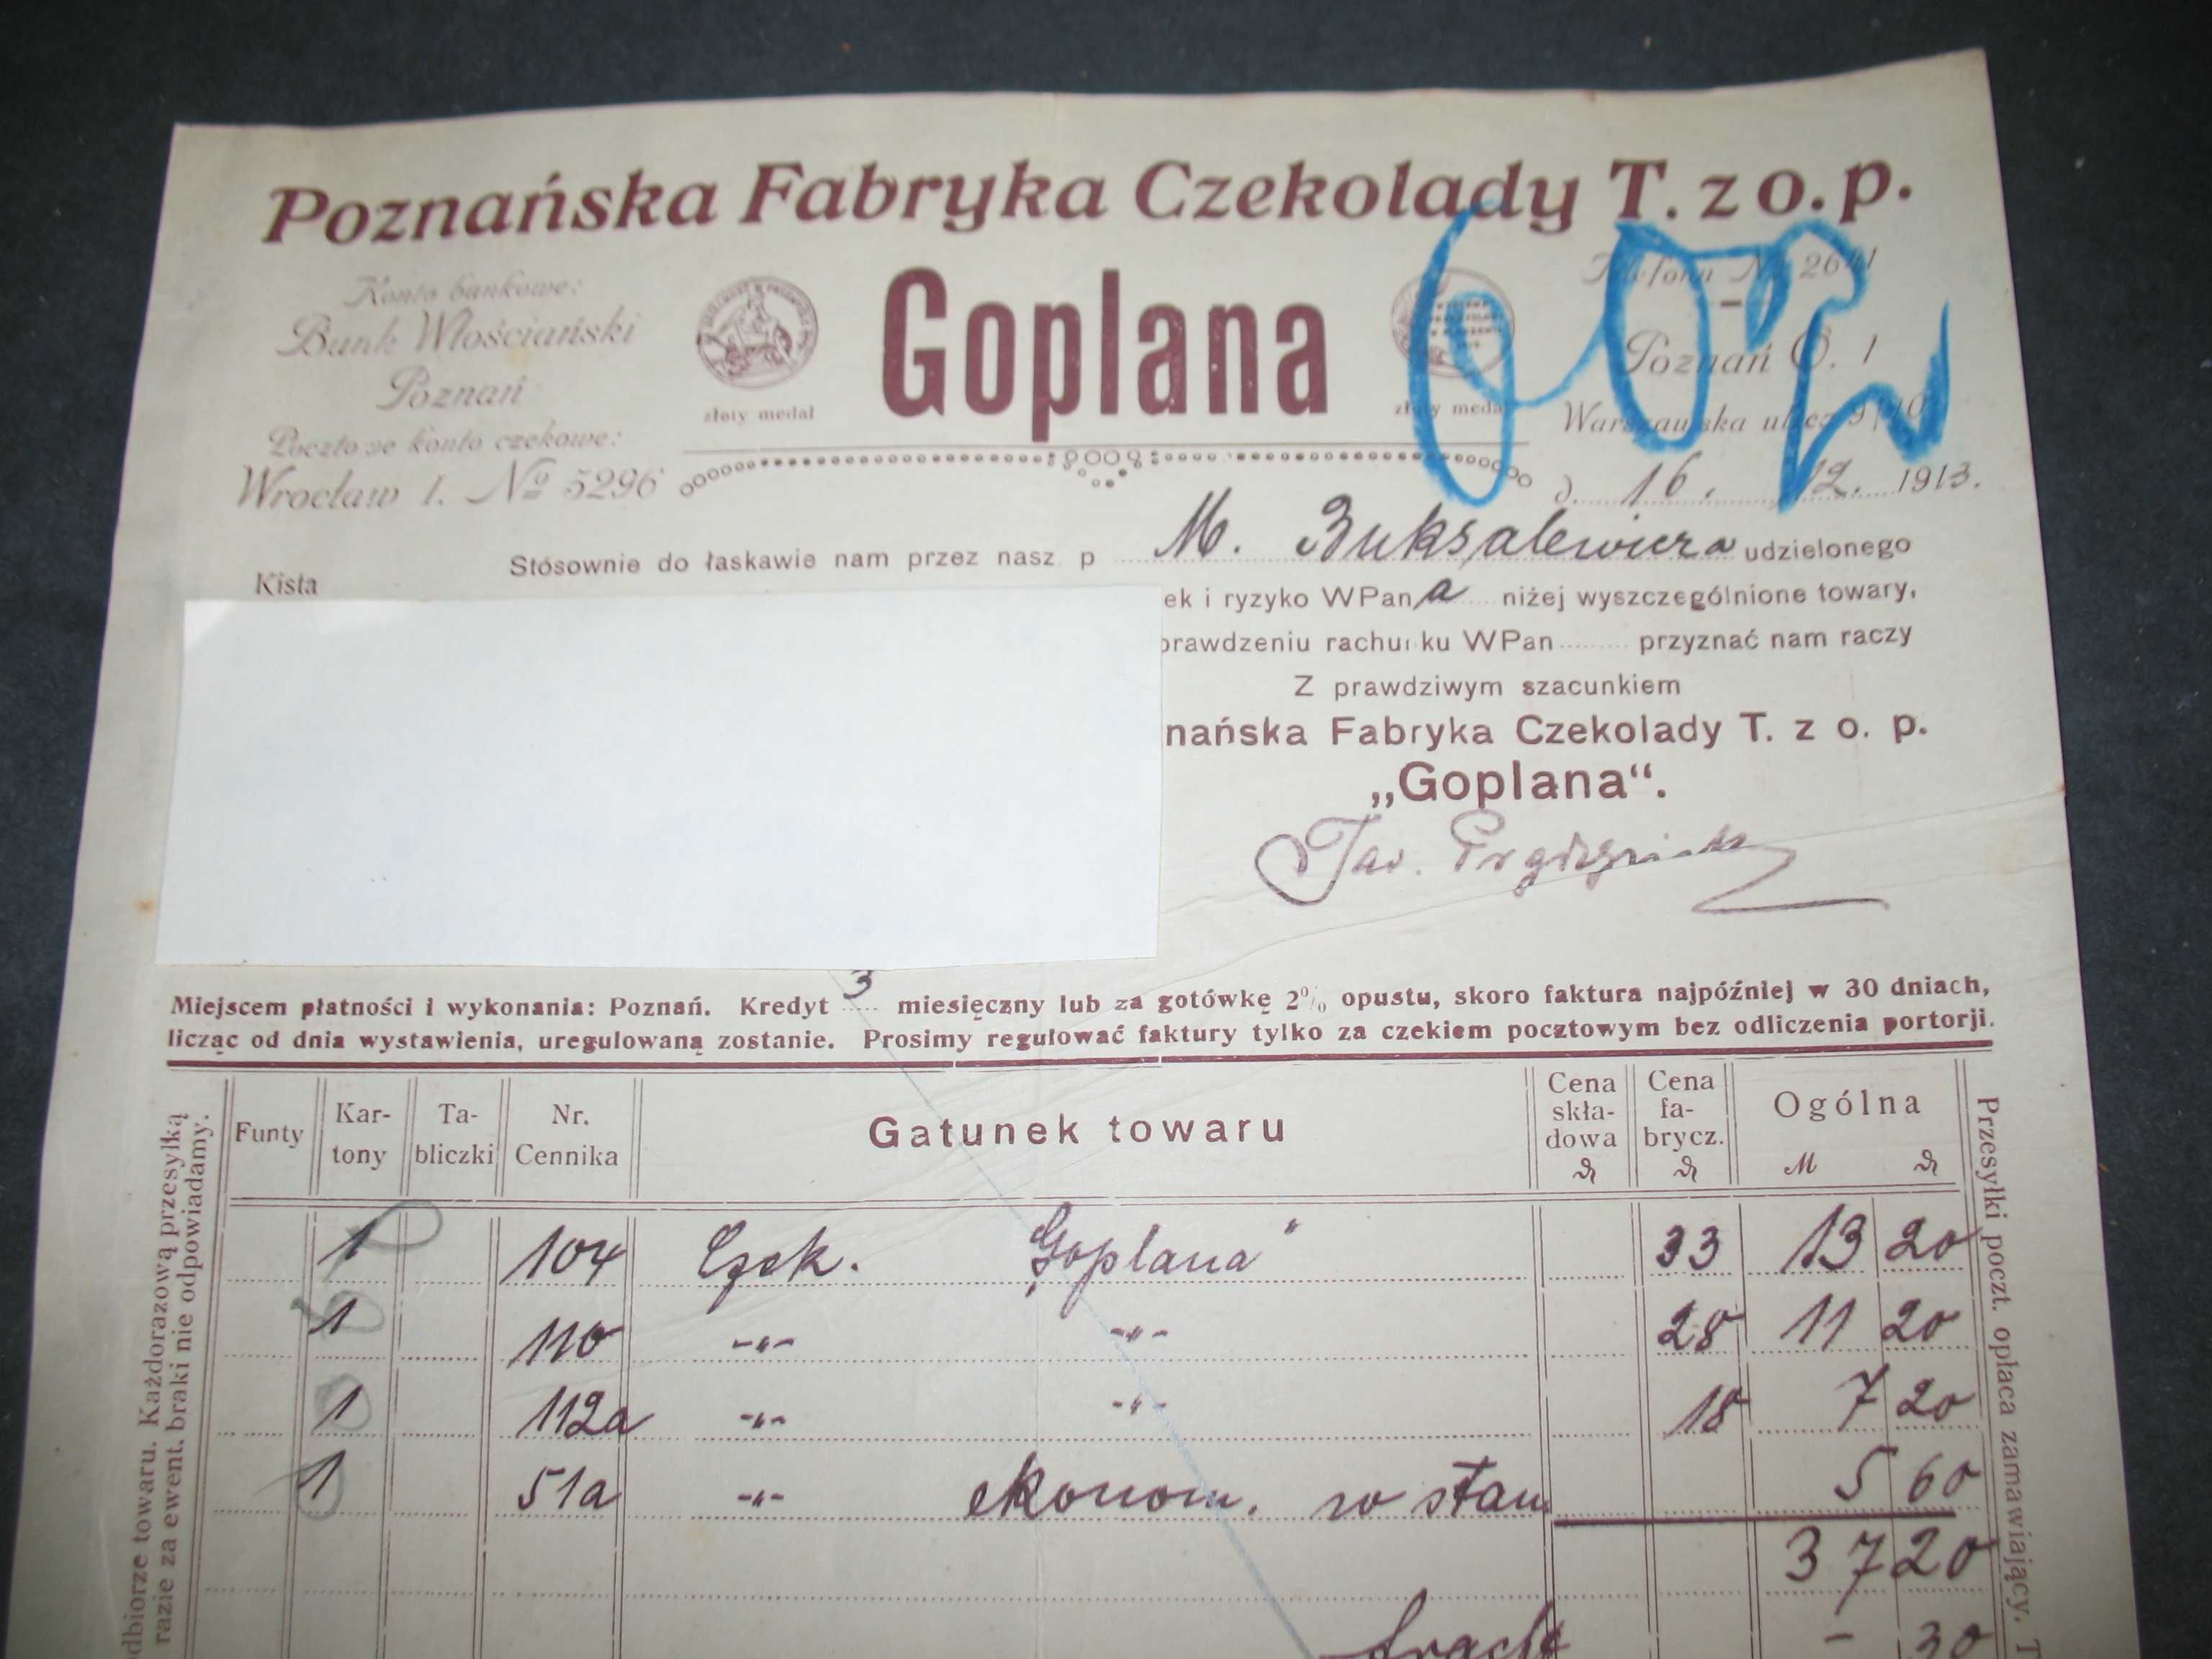 Poznańska Fabryka Czekolady T. z o. p.
Goplana
Konto bankowe:
Bank Włościański
Poznań
Pocztowe konto czekowe:
Wrocław I. No 5296
złoty medal
złoty medal
Telefonu Nr. 2641
Poznań O. 1
Warszawska ulica 9/10
d. 16. 12. 1913.
Stósownie do łaskawie nam przez nasz. p M. Buksalewicza udzielonego
Kista
ek i ryzyko WPan a niżej wyszczególnione towary,
prawdzeniu rachunku WPan przyznać nam raczy
Z prawdziwym szacunkiem
nańska Fabryka Czekolady T. z o. p.
„Goplana“.
Miejscem płatności i wykonania: Poznań. Kredyt 3 miesięczny lub za gotówkę 2% opustu, skoro faktura najpóźniej w 30 dniach,
licząc od dnia wystawienia, uregulowaną zostanie. Prosimy regulować faktury tylko za czekiem pocztowym bez odliczenia portorji.
Funty Kartony Tabliczki Nr. Cennika Gatunek towaru Cena składowa Cena fabrycz. Ogólna
M
1 104 Czek. „Goplana" 33 13 20
1 110 -"- -"- 28 11 20
1 112a -"- -"- 18 7 20
1 51a -"- ekonom. w stan 5 60
37 20
- 30
dbiorze towaru. Każdorazową przesyłką
razie za ewent. braki nie odpowiadamy.
Przesyłki poczt. opłaca zamawiający. T